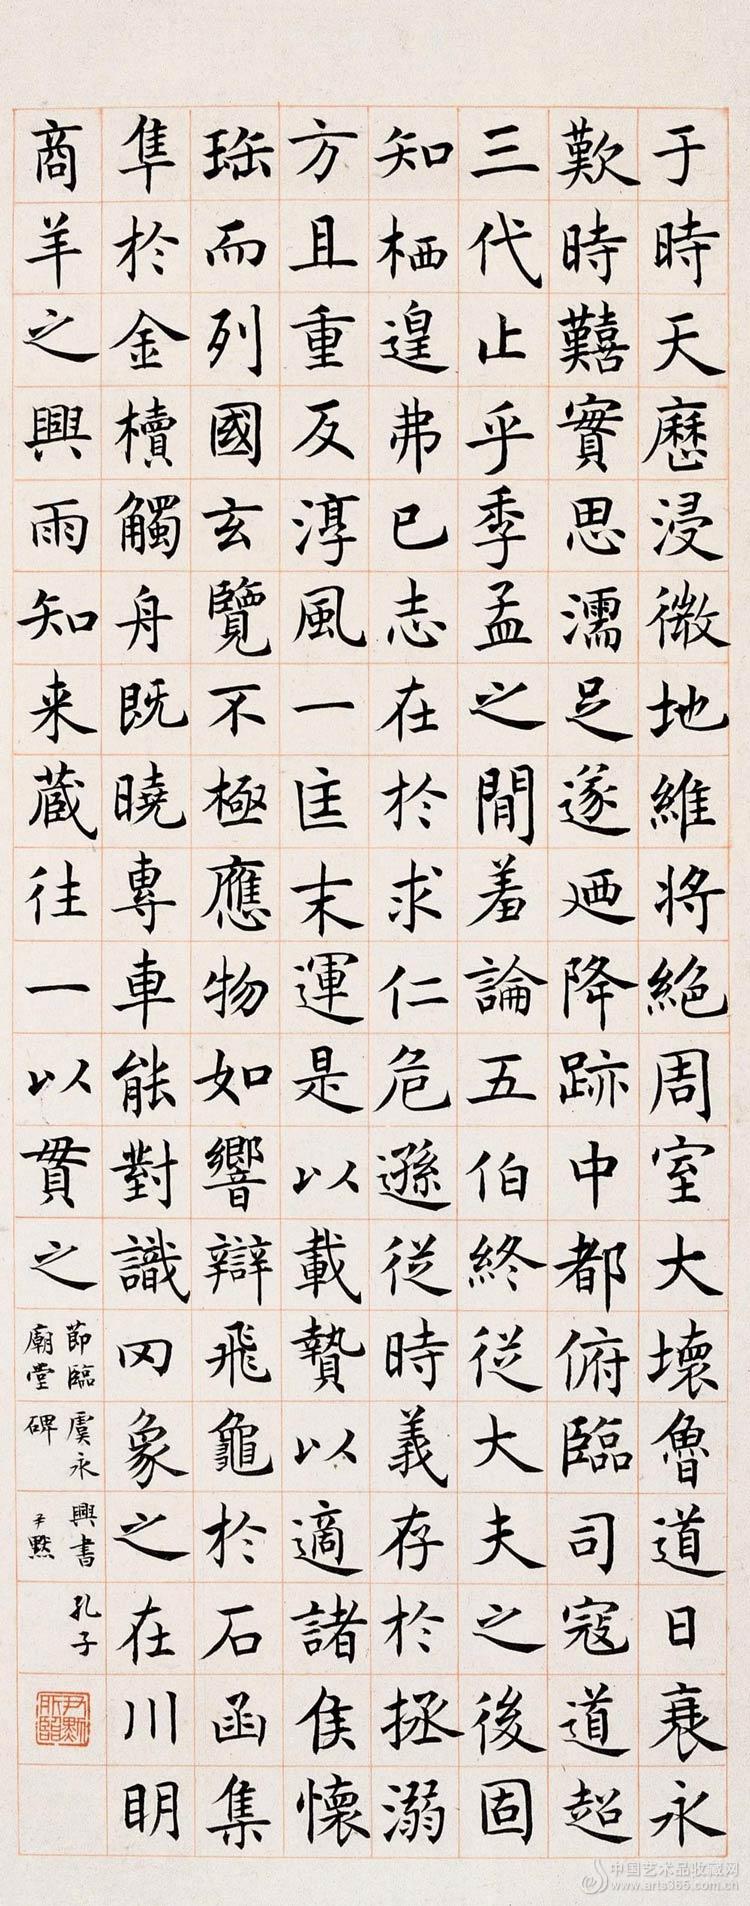 于時天歷浸微地維将絕周室大壞魯道日衰永
歎時囏實思濡足遂廼降跡中都俯臨司寇道超
三代止乎季孟之閒羞論五伯終從大夫之後固
知栖遑弗已志在於求仁危遜從時義存於拯溺
方且重反淳風一匡末運是以載贄以適諸侯懷
珤而列國玄覽不極應物如響辯飛龜於石函集
隼於金櫝觸舟既曉專車能對識罔象之在川明
商羊之興雨知来藏往一以貫之
節臨虞永興書孔子
廟堂碑 尹默
尹默所臨
中国艺术品收藏网
www.arts365.com.cn